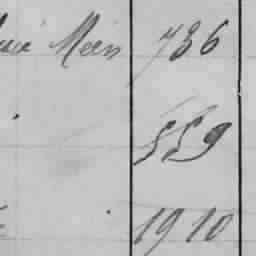 Men 736
559
1910